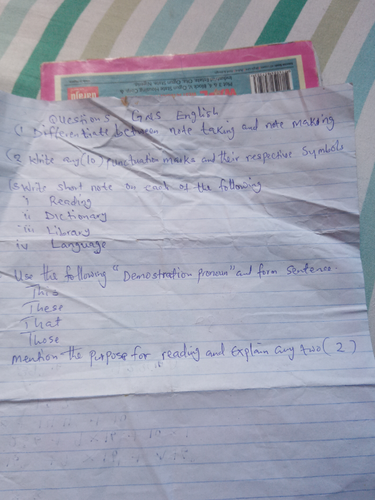 QUESTIONS GNS English
(1 Differentiate between note taking and note making
(2 Write any (10) Punctuation marks and their respective Symbols
(3 Write short note on each of the following
i) Reading
ii Dictionary
iii Library
iv Language
Use the following "Demostration pronoun" and form sentence
This
These
That
Those
Mention the purpose for reading and Explain any two (2)